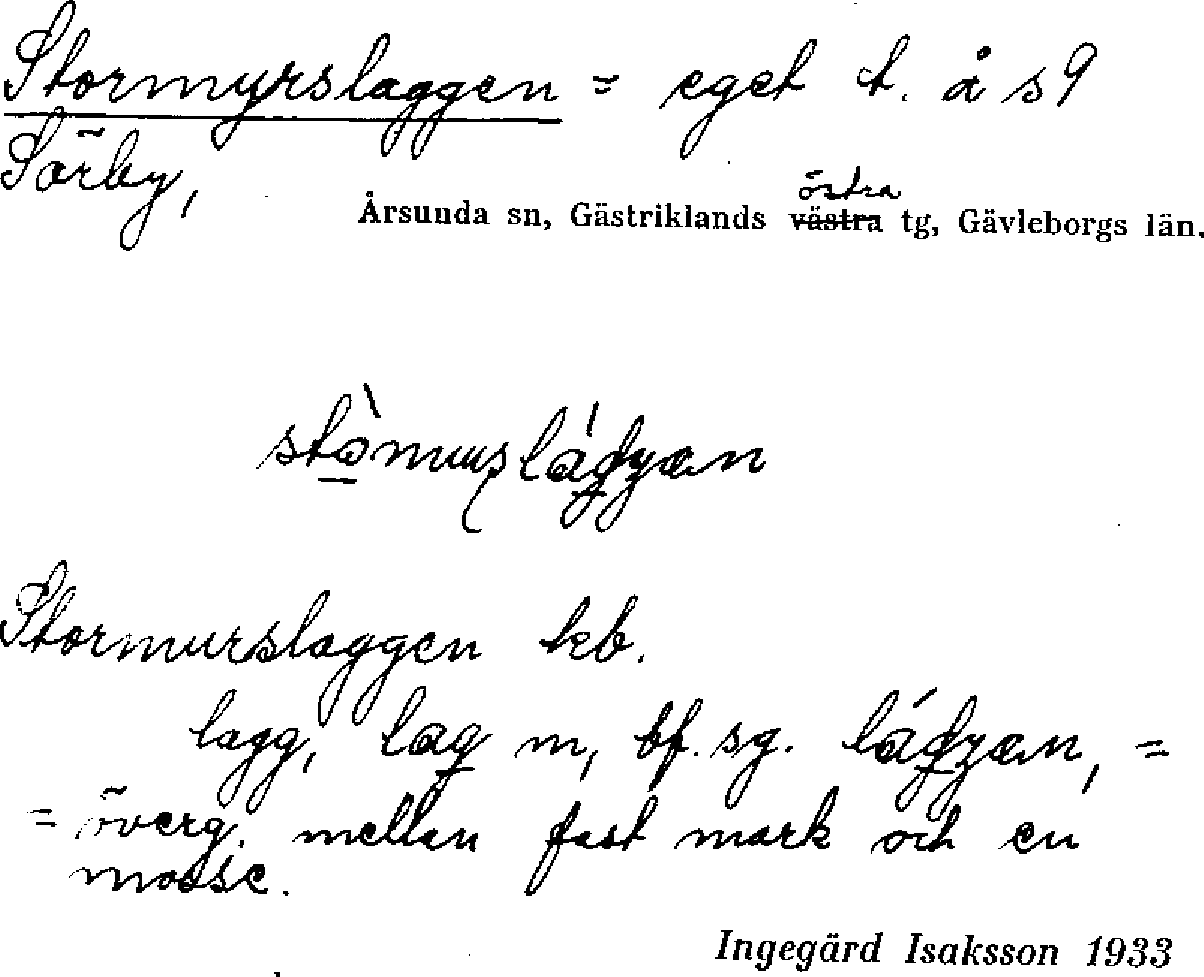 Stormyrslaggen = eget t. å s9
Sörby,
östra
Årsunda sn, Gästriklands västra tg, Gävleborgs län.
Stormurslaggen kb.
lagg, lag m, bf. sg. =
= överg. mellan fast mark och en
mosse.
Ingegärd Isaksson 1933